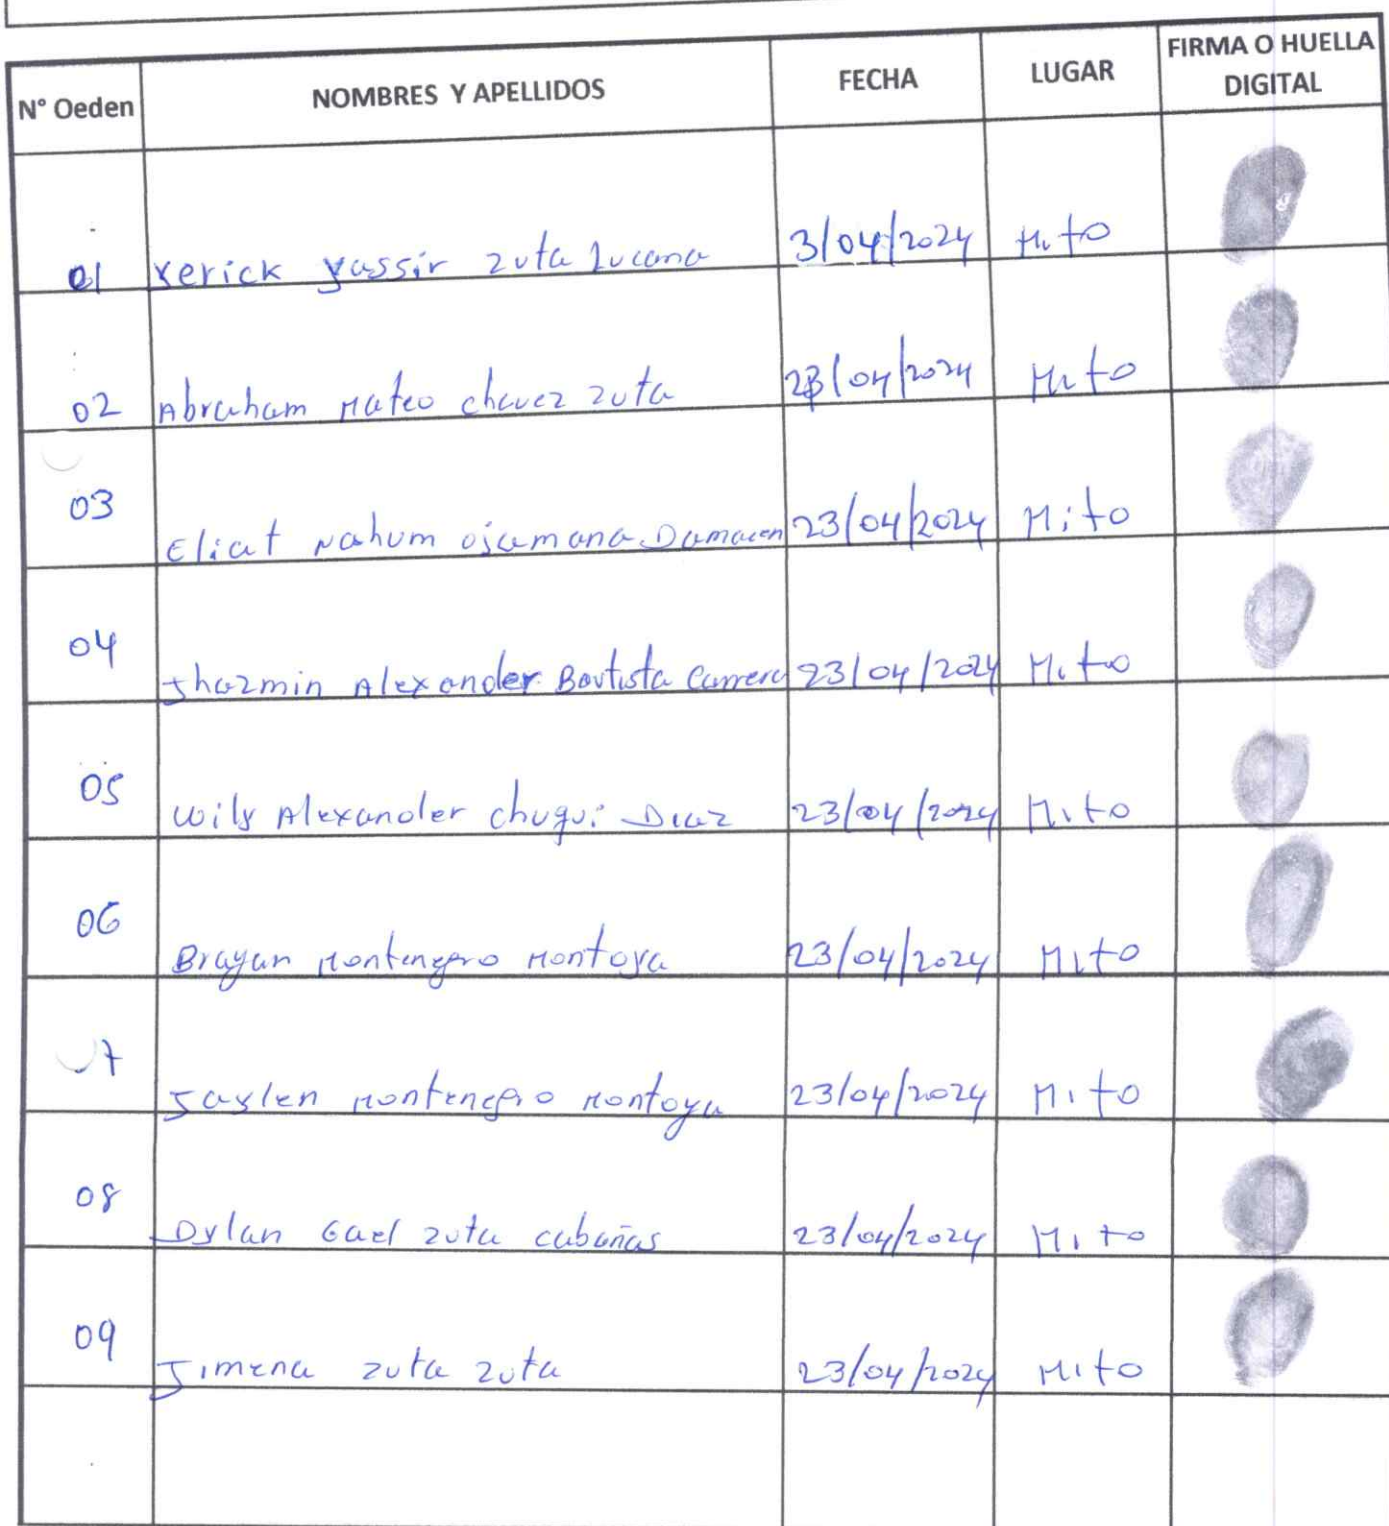 N° Oeden NOMBRES Y APELLIDOS FECHA LUGAR FIRMA O HUELLA DIGITAL
01 Yerick Yassir Zuta Lucana 3/04/2024 Mito
02 Abraham Mateo chavez zuta 23/04/2024 Mito
03 Eliat Nahum ojamana Damacen 23/04/2024 Mito
04 Jhazmin Alexander Bautista Carrera 23/04/2024 Mito
05 Wily Alexander chuqui Diaz 23/04/2024 Mito
06 Brayan Montenegro Montoya 23/04/2024 Mito
7 Jaylen Montenegro Montoya 23/04/2024 Mito
08 Dylan Gael zuta cabañas 23/04/2024 Mito
09 Jimena zuta zuta 23/04/2024 Mito